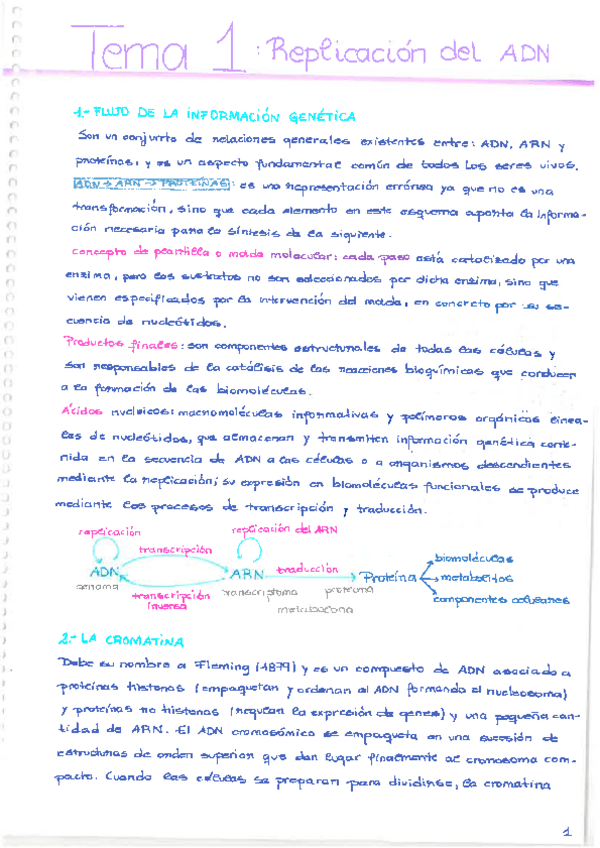 Tema 1: Replicación del ADN
1.- FLUJO DE LA INFORMACIÓN GENÉTICA
Son un conjunto de relaciones generales existentes entre: ADN, ARN y
proteínas, y es un aspecto fundamental común de todos los seres vivos.
ADN → ARN → PROTEÍNAS: es una representación errónea ya que no es una
transformación, sino que cada elemento en este esquema aporta la informa-
ción necesaria para la síntesis de la siguiente.
concepto de plantilla o molde molecular: cada paso está catalizado por una
enzima, pero los sustratos no son seleccionados por dicha enzima, sino que
vienen especificados por la intervención del molde, en concreto por su se-
cuencia de nucleótidos.
Productos finales: son componentes estructurales de todas las células y
son responsables de la catálisis de las reacciones bioquímicas que conducen
a la formación de las biomoléculas.
Ácidos nucleicos: macromoléculas informativas y polímeros orgánicos linea-
les de nucleótidos, que almacenan y transmiten información genética conte-
nida en la secuencia de ADN a las células o a organismos descendientes
mediante la replicación; su expresión en biomoléculas funcionales se produce
mediante los procesos de transcripción y traducción.
replicación replicación del ARN
transcripción biomoléculas
ADN ARN traducción Proteína metabolitos
genoma transcripción inversa transcriptoma proteoma componentes celulares
metaboloma
2.- LA CROMATINA
Debe su nombre a Fleming (1879) y es un compuesto de ADN asociado a
proteínas histonas (empaquetan y ordenan al ADN formando el nucleosoma)
y proteínas no histonas (regulan la expresión de genes) y una pequeña can-
tidad de ARN. El ADN cromosómico se empaqueta en una sucesión de
estructuras de orden superior que dan lugar finalmente al cromosoma com-
pacto. Cuando las células se preparan para dividirse, la cromatina
1